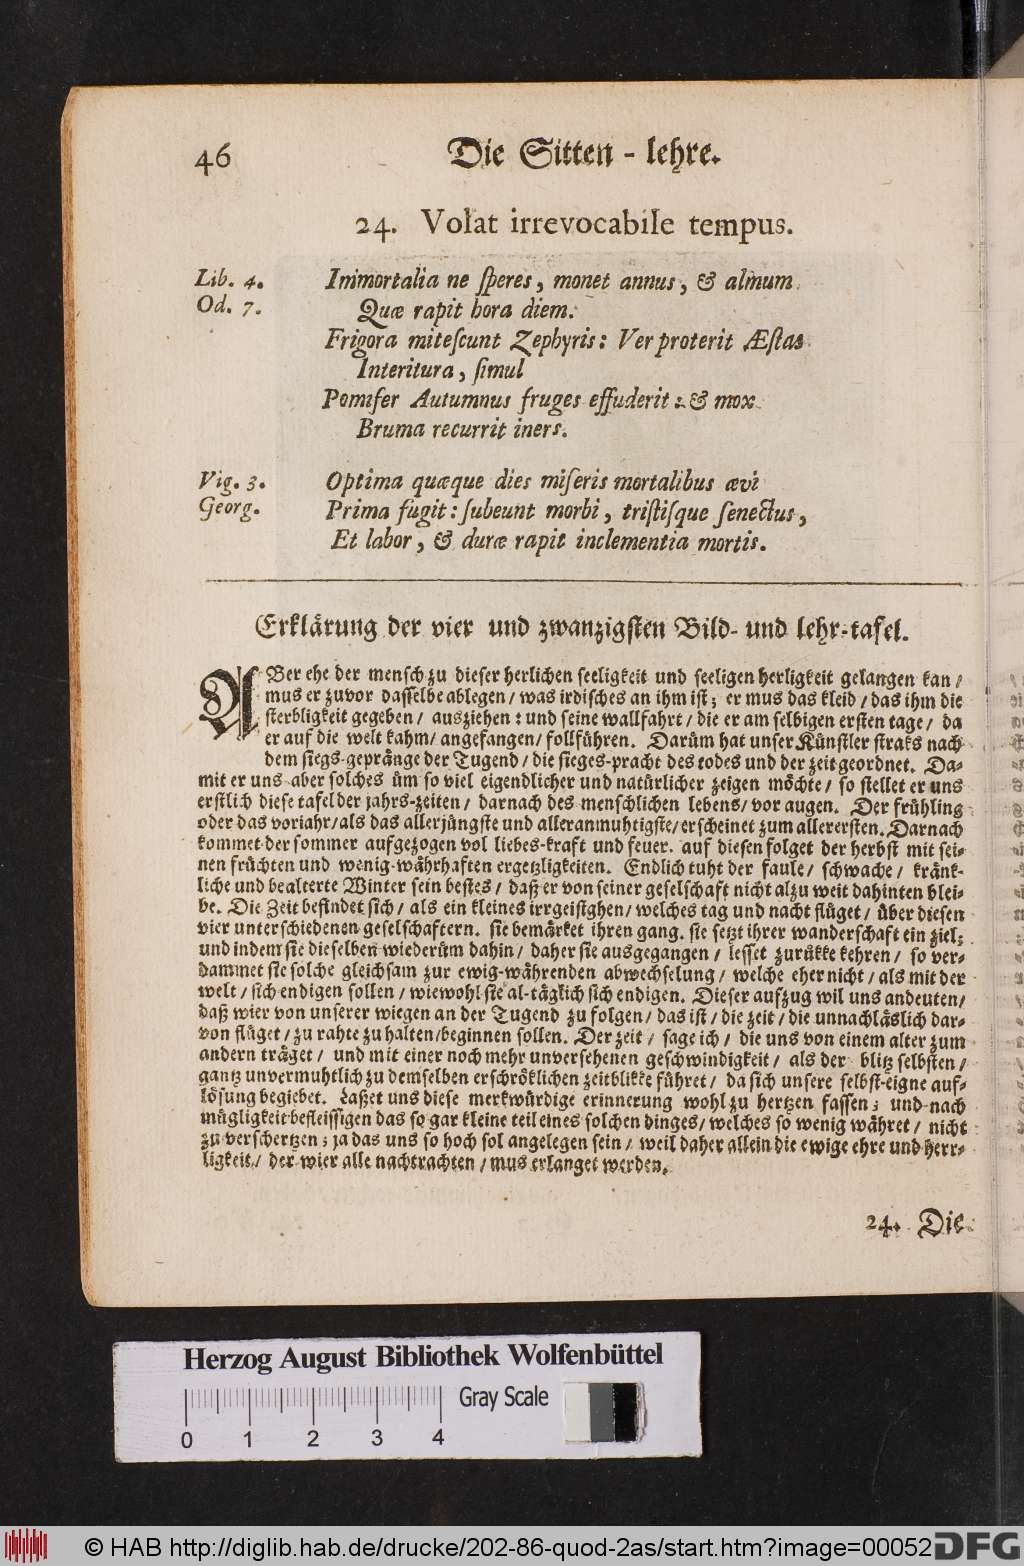 46 Die Sitten - lehre.
24. Volat irrevocabile tempus.
Lib. 4. Immortalia ne ſperes, monet annus, & almum
Od. 7. Quæ rapit hora diem.
Frigora miteſcunt Zephyris: Ver proterit Æſtas
Interitura, ſimul
Pomifer Autumnus fruges effuderit: & mox
Bruma recurrit iners.
Vig. 3. Optima quæque dies miſeris mortalibus ævi
Georg. Prima fugit: ſubeunt morbi, triſtiſque ſenectus,
Et labor, & duræ rapit inclementia mortis.
Erklärung der vier und zwanzigſten Bild- und lehr-tafel.
ABer ehe der menſch zu dieſer herlichen ſeeligkeit und ſeeligen herligkeit gelangen kan /
mus er zuvor daſſelbe ablegen / was irdiſches an ihm iſt; er mus das kleid / das ihm die
ſterbligkeit gegeben / ausziehen: und ſeine wallfahrt / die er am ſelbigen erſten tage / da
er auf die welt kahm / angefangen / follführen. Darüm hat unſer Künſtler ſtraks nach
dem ſiegs-gepränge der Tugend / die ſieges-pracht des todes und der zeit geordnet. Da-
mit er uns aber ſolches üm ſo viel eigendlicher und natürlicher zeigen möchte / ſo ſtellet er uns
erſtlich dieſe tafel der jahrs-zeiten / darnach des menſchlichen lebens / vor augen. Der frühling
oder das vorjahr / als das allerjüngſte und alleranmuhtigſte / erſcheinet zum allererſten. Darnach
kommet der ſommer aufgezogen vol liebes-kraft und feuer. auf dieſen folget der herbſt mit ſei-
nen früchten und wenig-währhaften ergetzligkeiten. Endlich tuht der faule / ſchwache / kränk-
liche und bealterte Winter ſein beſtes / daß er von ſeiner geſelſchaft nicht alzu weit dahinten blei-
be. Die Zeit befindet ſich / als ein kleines irrgeiſtghen / welches tag und nacht flüget / über dieſen
vier unterſchiedenen geſelſchaftern. ſie bemärket ihren gang. ſie ſetzt ihrer wanderſchaft ein ziel;
und indem ſie dieſelben wiederüm dahin / daher ſie ausgegangen / leſſet zurükke kehren / ſo ver-
dammet ſie ſolche gleichſam zur ewig-währenden abwechſelung / welche eher nicht / als mit der
welt / ſich endigen ſollen / wiewohl ſie al-täglich ſich endigen. Dieſer aufzug wil uns andeuten /
daß wier von unſerer wiegen an der Tugend zu folgen / das iſt / die zeit / die unnachläslich dar-
von flüget / zu rahte zu halten / beginnen ſollen. Der zeit / ſage ich / die uns von einem alter zum
andern träget / und mit einer noch mehr unverſehenen geſchwindigkeit / als der blitz ſelbſten /
gantz unvermuhtlich zu demſelben erſchröklichen zeitblikke führet / da ſich unſere ſelbſt-eigne auf-
löſung begiebet. Laßet uns dieſe merkwürdige erinnerung wohl zu hertzen faſſen; und nach
mügligkeit befleiſſigen das ſo gar kleine teil eines ſolchen dinges / welches ſo wenig währet / nicht
zu verſchertzen; ja das uns ſo hoch ſol angelegen ſein / weil daher allein die ewige ehre und herr-
ligkeit / der wier alle nachtrachten / mus erlanget werden.
24. Die
Herzog August Bibliothek Wolfenbüttel
Gray Scale
0 1 2 3 4
© HAB http://diglib.hab.de/drucke/202-86-quod-2as/start.htm?image=00052
DFG